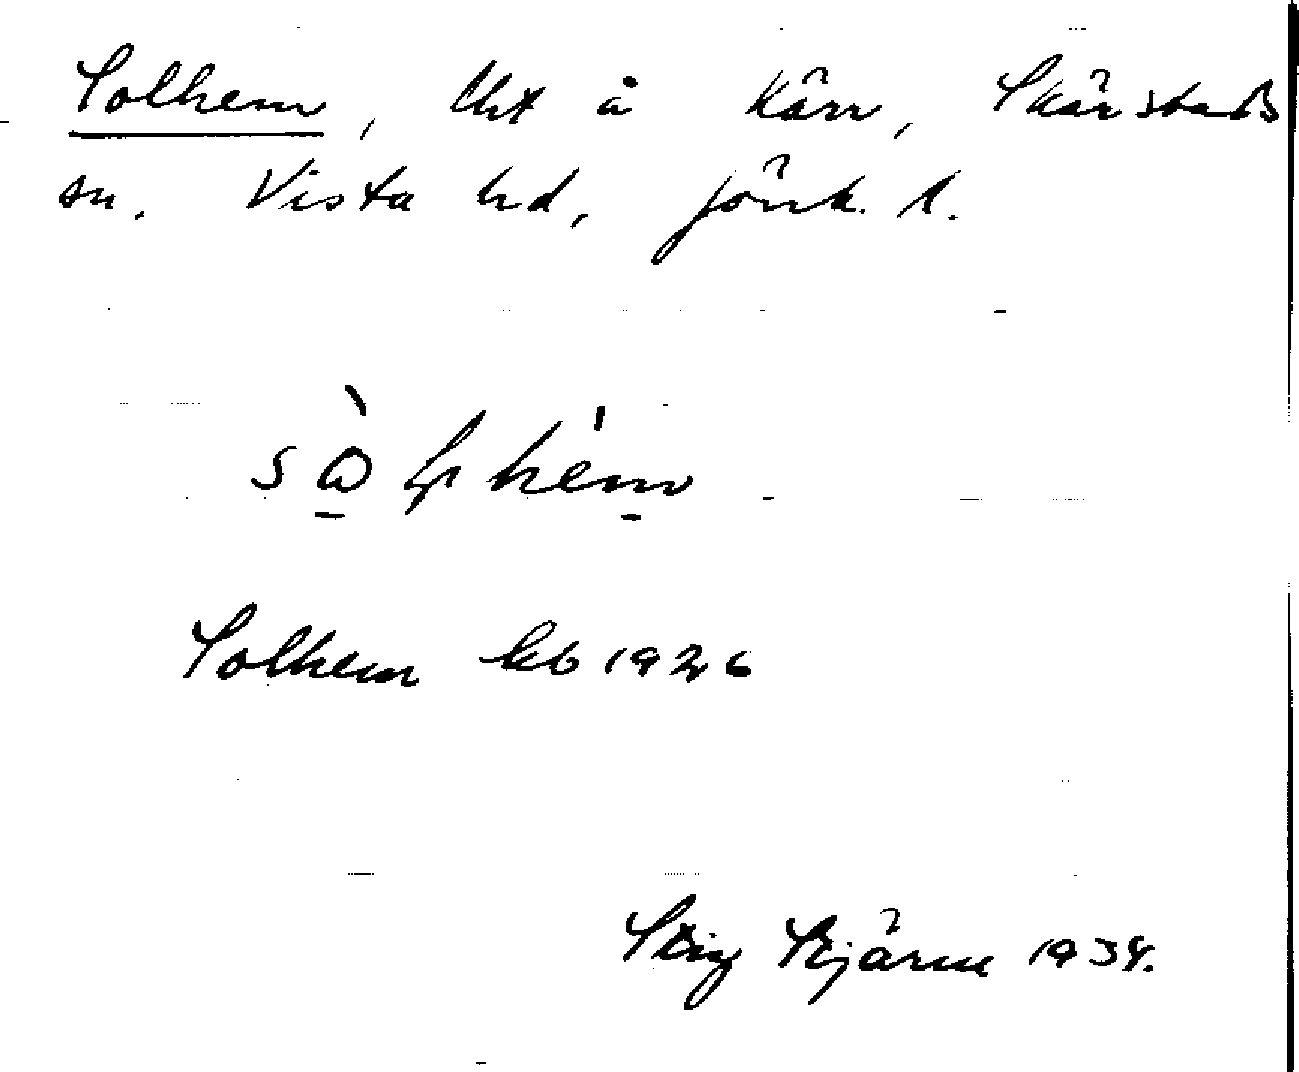 Solhem, lht å Kärr, Skärstads
sn. Vista hd, Jönk. l.
Solhem kb 1926
Stig Bjärme 1934.